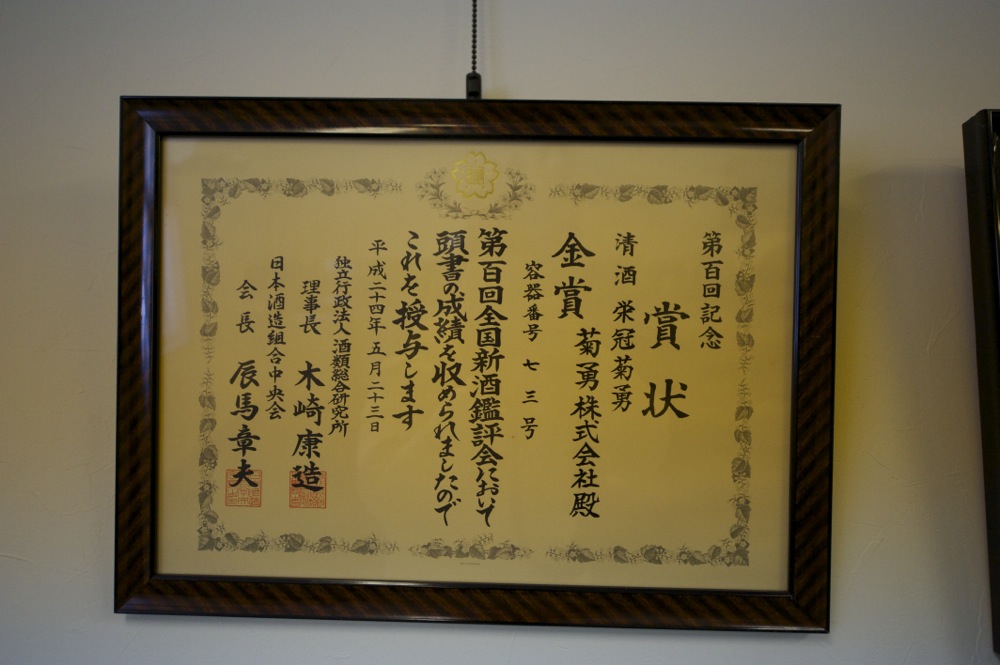 第百回記念
賞状
清酒 栄冠菊勇
菊勇株式会社殿
金賞
容器番号 七三号
第百回全国新酒鑑評会において
頭書の成績を収められましたので
これを授与します
平成二十四年五月二十三日
独立行政法人 酒類総合研究所
理事長 木崎康造
日本酒造組合中央会
会長 辰馬章夫